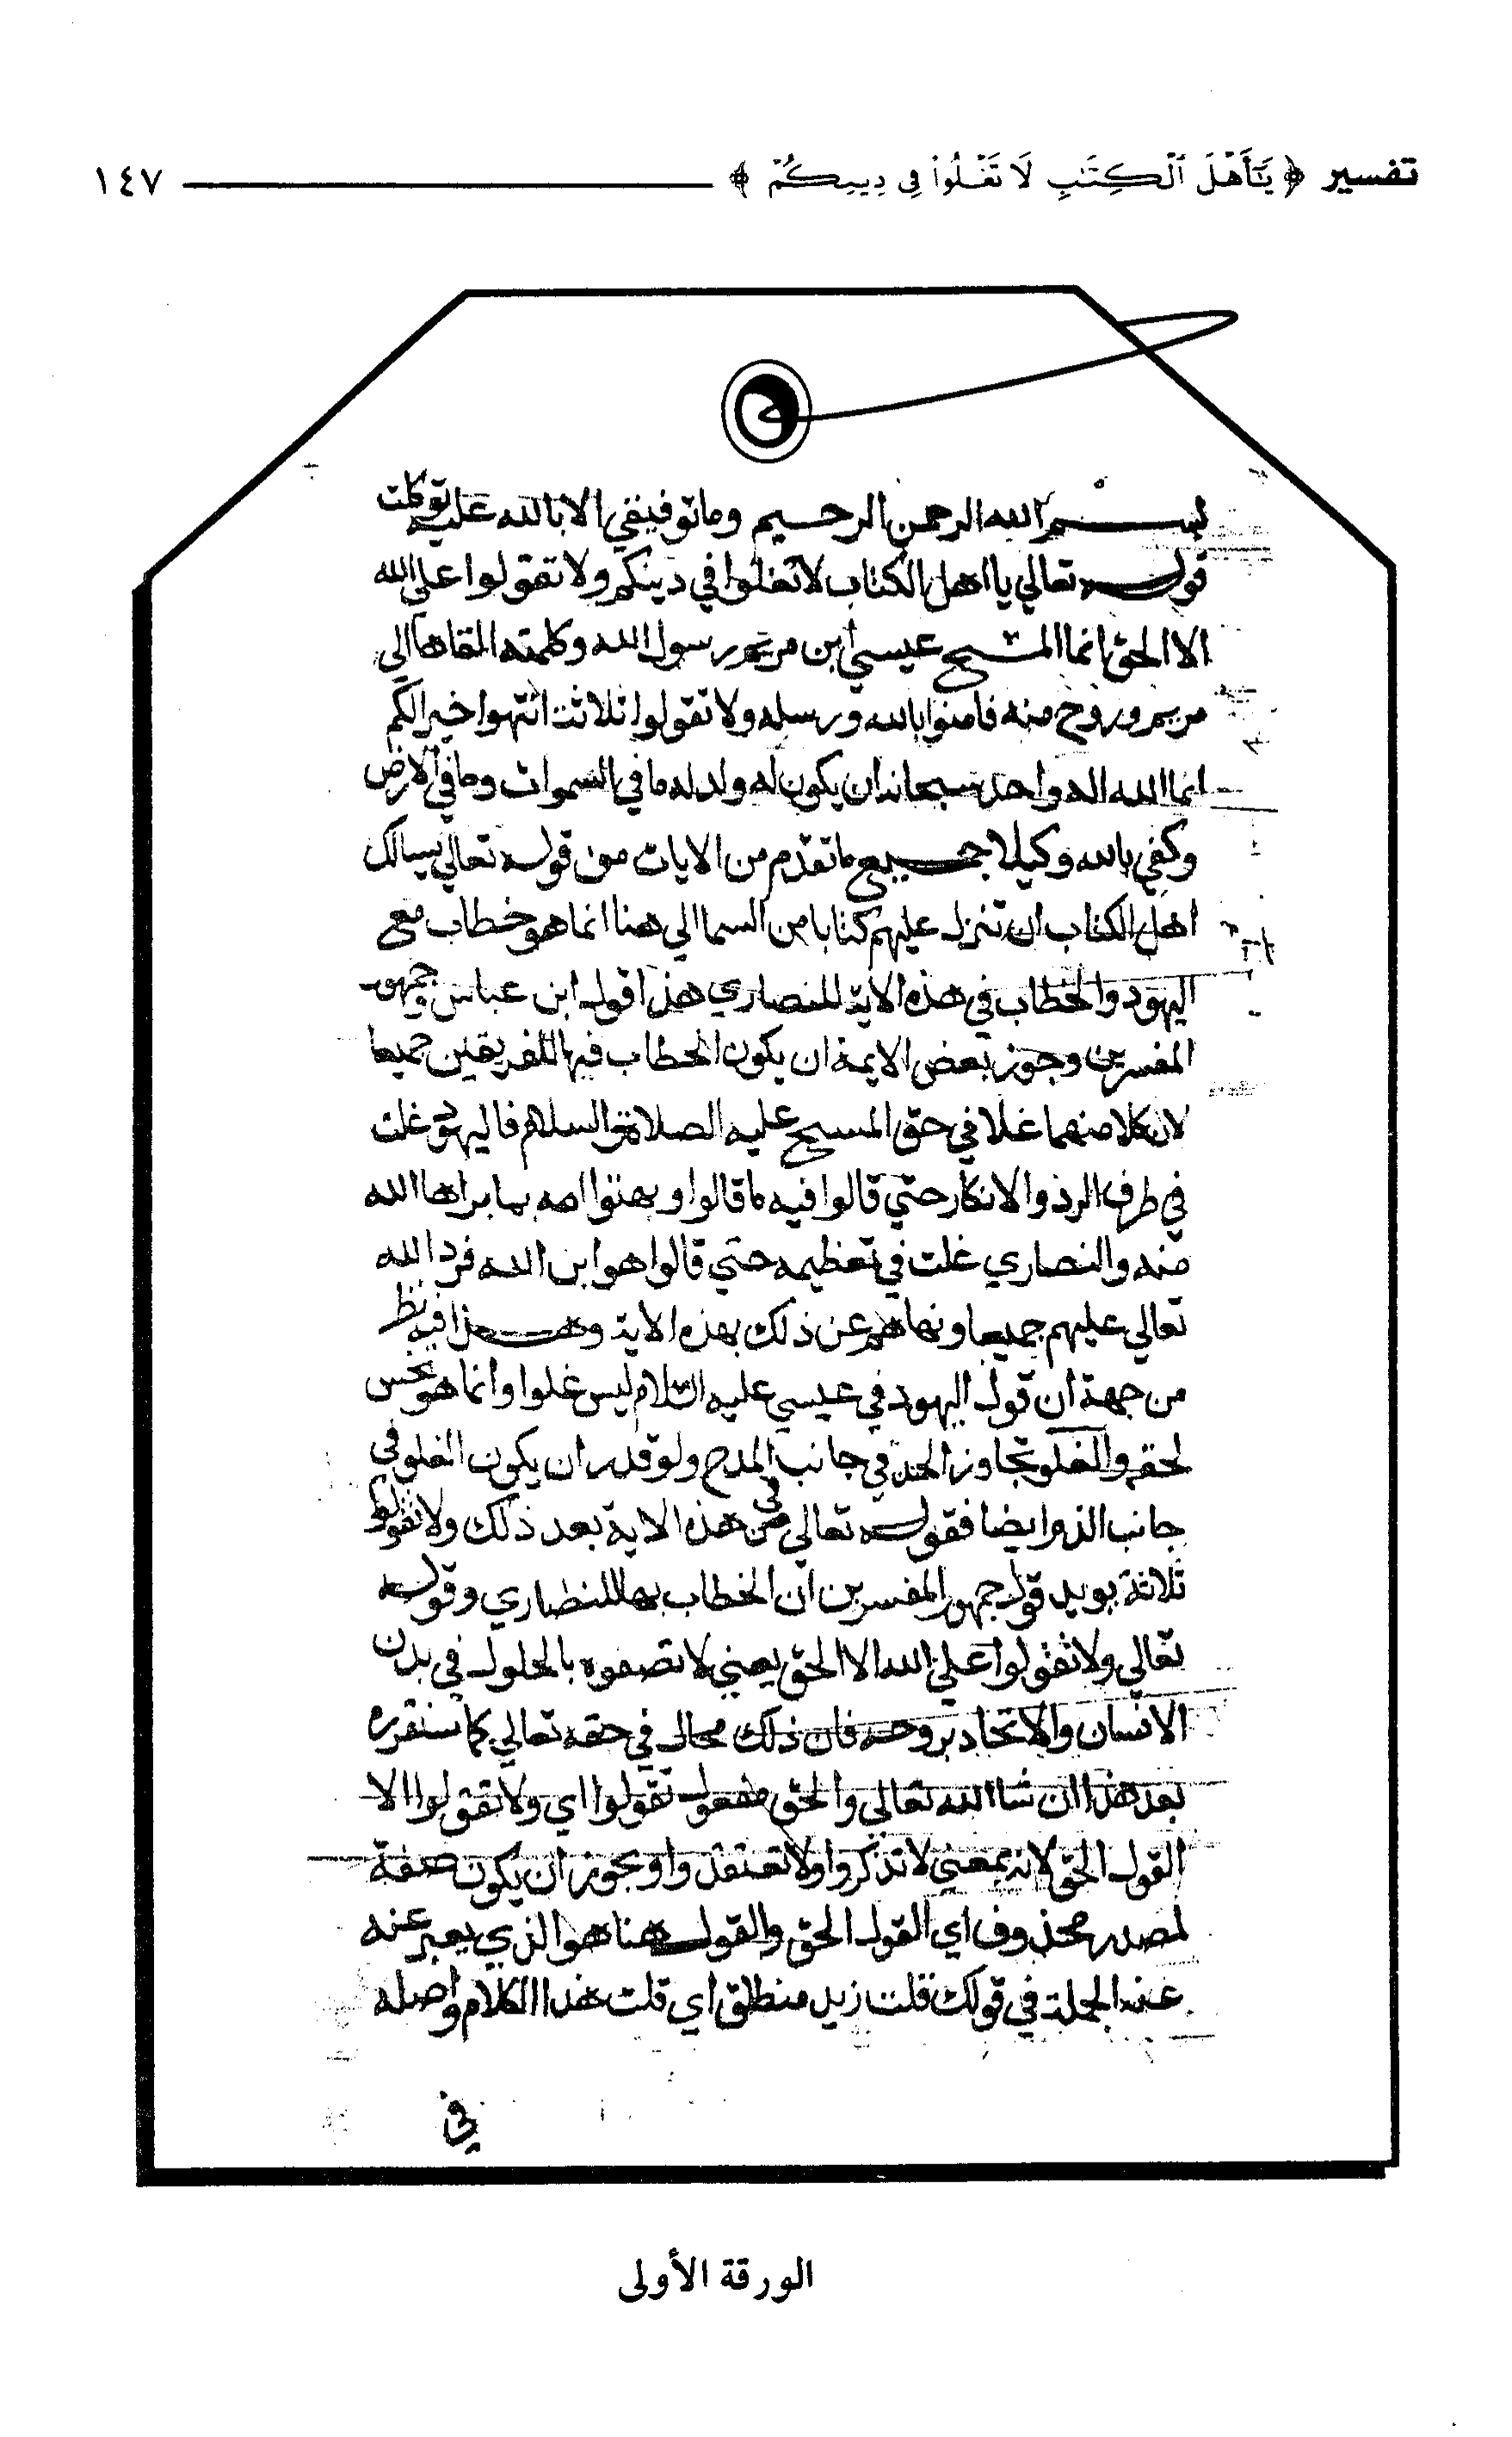 تفسير ﴿ يَٰٓأَهْلَ ٱلْكِتَٰبِ لَا تَغْلُوا۟ فِى دِينِكُمْ ﴾ ١٤٧
بسم الله الرحمن الرحيم وما توفيقي الا بالله عليه توكلت
قوله تعالي يا اهل الكتاب لا تغلوا في دينكم ولا تقولوا علي الله
الا الحق انما المسيح عيسي ابن مريم رسول الله وكلمته القاها الي
مريم وروح منه فامنوا بالله ورسله ولا تقولوا ثلاثة انتهوا خيرا لكم
انما الله اله واحد سبحانه ان يكون له ولد له ما في السموات وما في الارض
وكفي بالله وكيلا جميع ما تقدم من الايات من قوله تعالي يسالك
اهل الكتاب ان تنزل عليهم كتابا من السما الي هنا انما هو خطاب مع
اليهود والخطاب في هذه الاية للنصاري هذا قول ابن عباس وجمهور
المفسرين وجوز بعض الايمة ان يكون الخطاب فيها للفريقين جميعا
لان كلا منهما غلا في حق المسيح عليه الصلاة والسلام فاليهود غلت
في طرف الرد والانكار حتي قالوا فيه ما قالوا وبهتوا امه بما براها الله
منه والنصاري غلت في تعظيمه حتي قالوا هو ابن الله فرد الله
تعالي عليهم جميعا ونهاهم عن ذلك بهذه الاية وهذا فيه نظر
من جهة ان قول اليهود في عيسي عليه السلام ليس غلوا وانما هو بخس
لحقه والغلو تجاوز الحد في جانب المدح ولو قدر ان يكون الغلو في
جانب الذم ايضا فقوله تعالي في هذه الاية بعد ذلك ولا تقولوا
ثلاثة يويد قول جمهور المفسرين ان الخطاب بها للنصاري وقوله
تعالي ولا تقولوا علي الله الا الحق يعني لا تصفوه بالحلول في بدن
الانسان والاتحاد بروحه فان ذلك محال في حقه تعالي كما سنقرره
بعد هذا ان شا الله تعالي والحق مفعول تقولوا اي ولا تقولوا الا
القول الحق لانه بمعني لا تذكروا ولا تعتقدوا ويجوز ان يكون صفة
لمصدر محذوف اي القول الحق والقول هنا هو الذي يعبر عنه
عنه الجملة في قولك قلت زيد منطلق اي قلت هذا الكلام واصله
في
الورقة الأولى